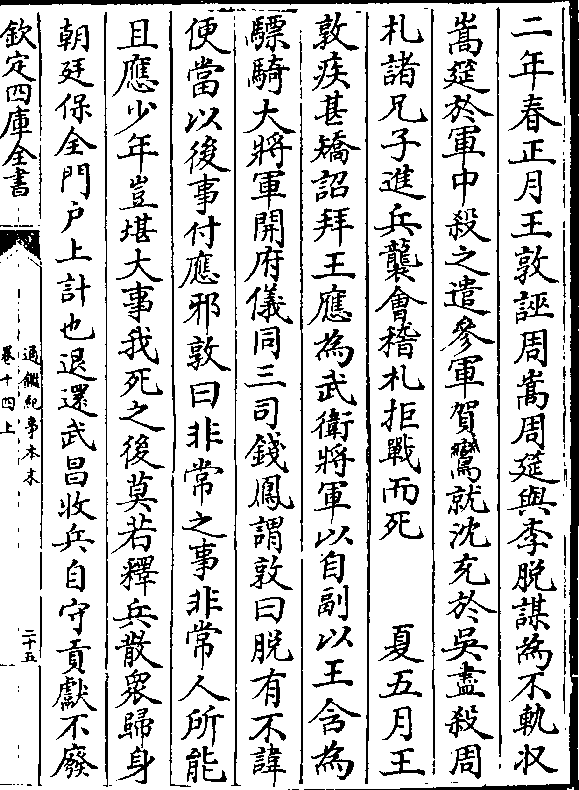 二年春正月王敦誣周嵩周筵與李脫謀為不軌收
嵩筵於軍中殺之遣參軍賀鸞就沈充於吳盡殺周
札諸兄子進兵襲會稽札拒戰而死　夏五月王
敦疾甚矯詔拜王應為武衛將軍以自副以王含為
驃騎大將軍開府儀同三司錢鳳謂敦曰脫有不諱
便當以後事付應邪敦曰非常之事非常人所能
且應少年豈堪大事我死之後莫若釋兵散衆歸身
朝廷保全門戶上計也退還武昌收兵自守貢獻不廢
欽定四庫全書
通鑑紀事本末
卷十四上
二十五